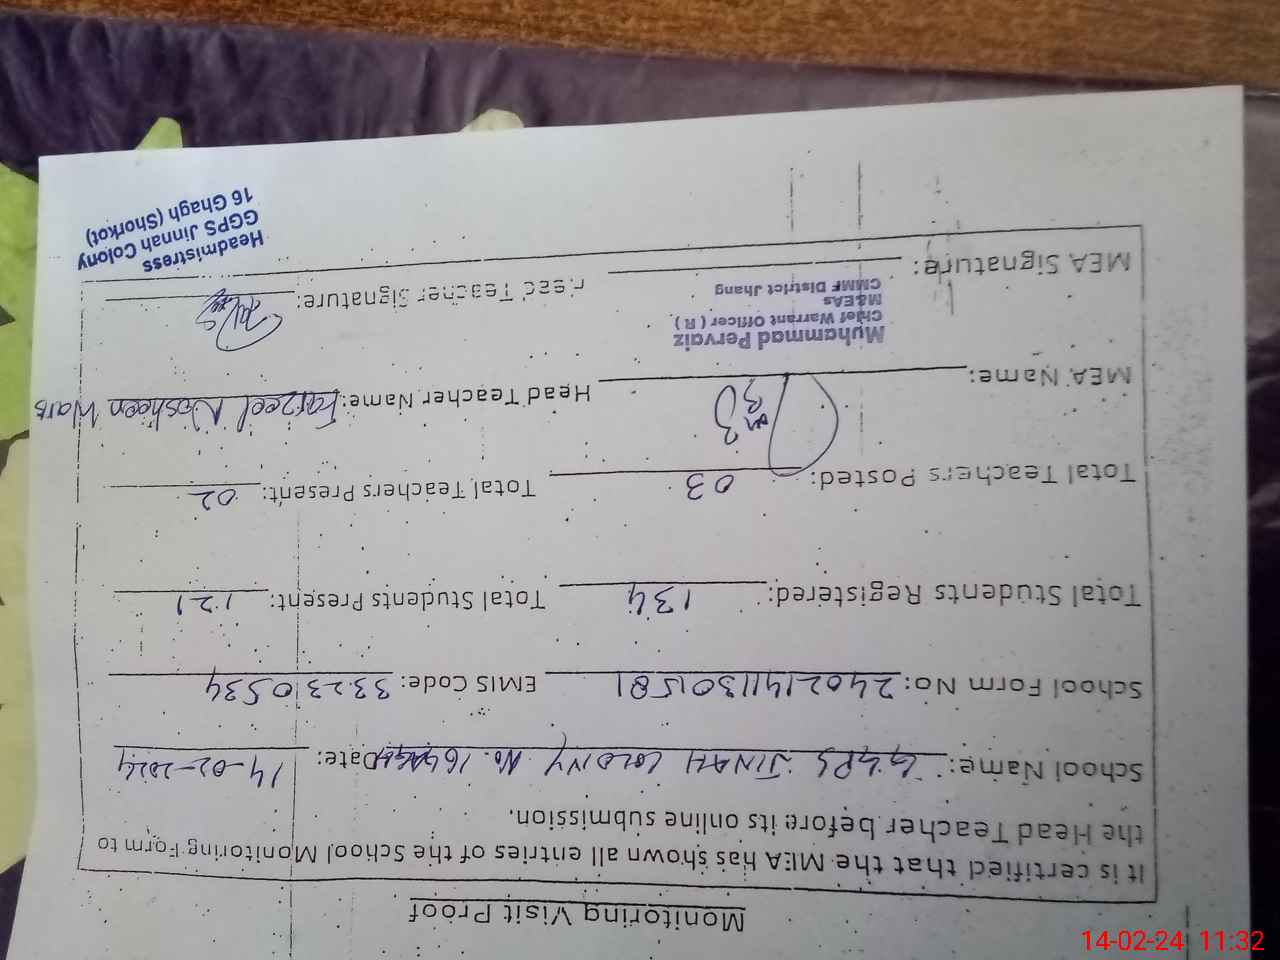 Monitoring Visit Proof
It is certified that the MEA has shown all entries of the School Monitoring Form to
the Head Teacher before its online submission.
School Name: GGPS JINAH COLONY No. 16 Date: 14-02-2024
School Form No: 24021411301581 EMIS Code: 33230534
Total Students Registered: 134 Total Students Present: 121
Total Teachers Posted: 03 Total Teachers Present: 02
MEA Name: Head Teacher Name: Nosheen
Muhammad Pervaiz
Chief Warrant Officer ( R )
M&EAs
CMMF District Jhang
MEA Signature: Head Teacher Signature:
Headmistress
GGPS Jinnah Colony
16 Ghagh (Shorkot)
14-02-24 11:32